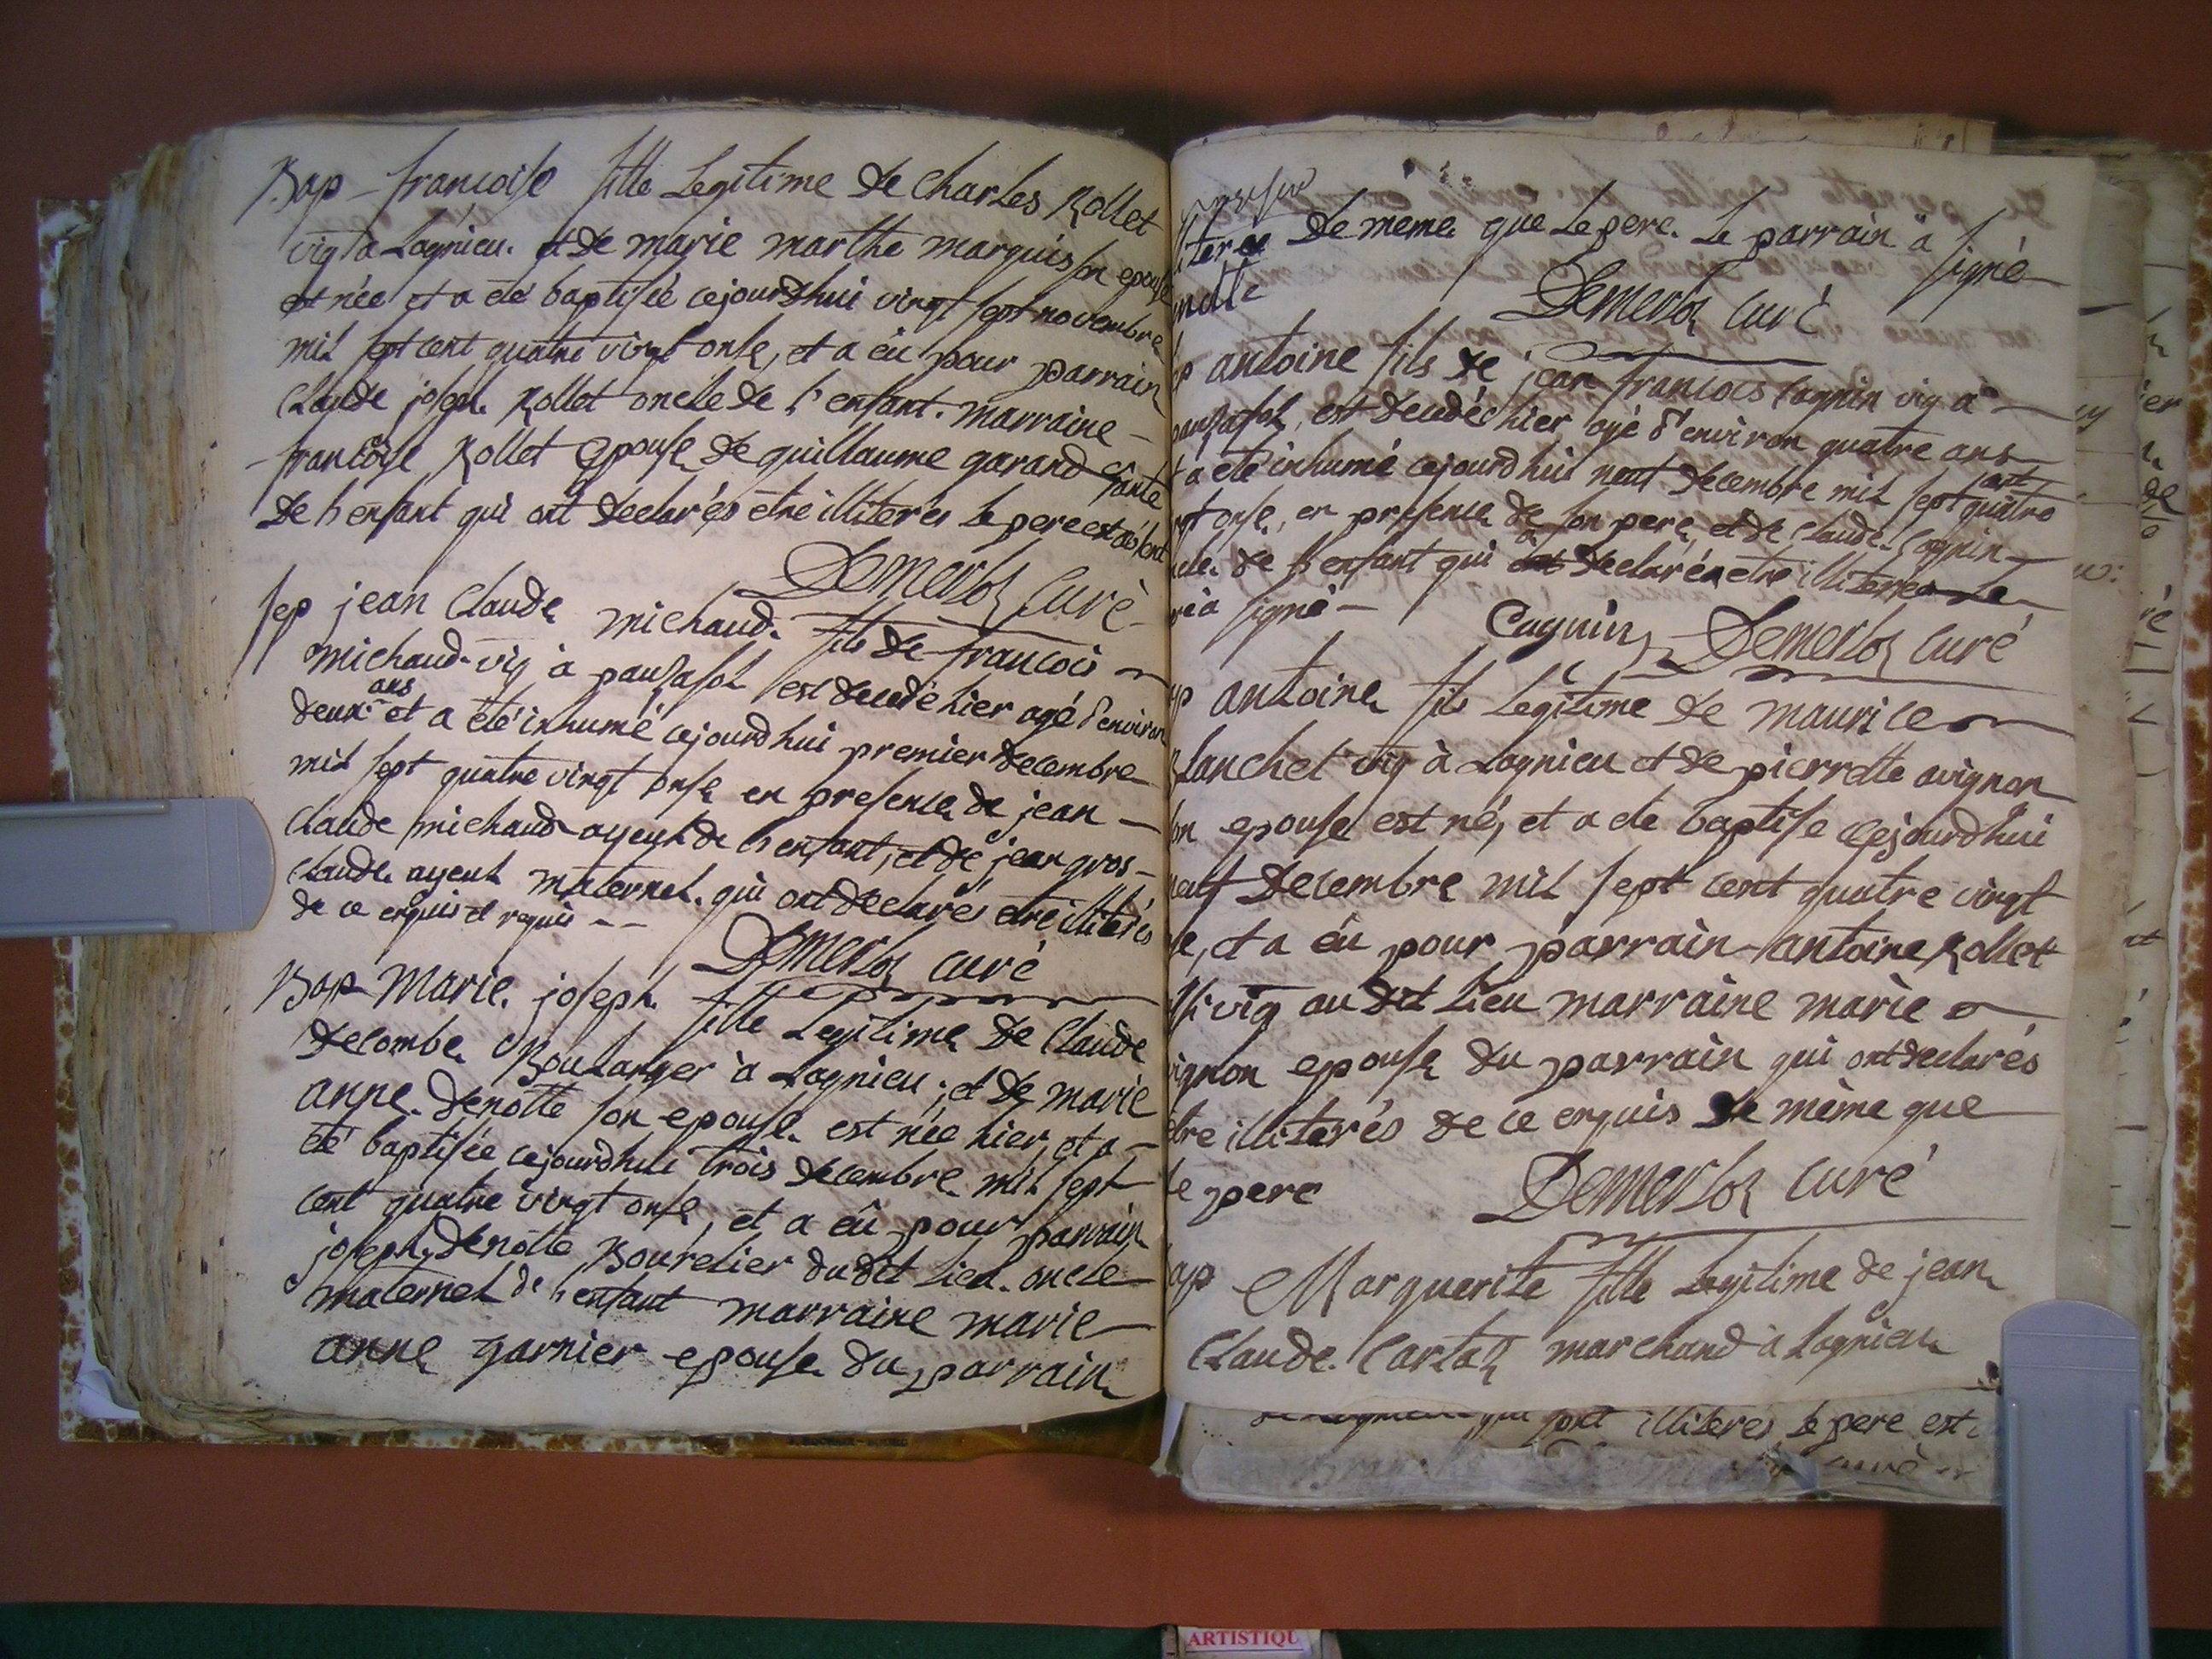 Bap francoise fille Legitime de Charles Rollet
vig à Lagnieu. et de marie marthe marquis son epouse
est née et a été baptisée cejourdhui vingt sept novembre
mil sept cent quatre vingt onse, et a éu pour parrain
Claude joseph Rollet oncle de l'enfant. marraine
francoise Rollet Epouse de guillaume garand tante
de l'enfant qui ont declarés etre illiterés Le pere est absent
Demerloz Curé
sep jean Claude michaud. fils de francois
michaud vig à pausafol est decedé hier agé d'environ
ans
deux et a été inhumé cejourdhui premier decembre
mil sept quatre vingt onse en presence de jean
Claude michaud ayeul de l'enfant, et de jean gros
claude ayeul maternel. qui ont declarés etre illiterés
de ce enquis et requis
Demerloz curé
Bap Marie. joseph fille Legitime de Claude
decombe Boulanger à Lagnieu; et de marie
anne. denotte son epouse. est née hier, et a
été baptisée cejourdhui trois decembre mil sept
cent quatre vingt onse, et a éu pour parrain
joseph denotte Bourelier dudit Lieu. oncle
maternel de l'enfant marraine marie
anne garnier epouse du parrain
de meme que Le pere. Le parrain a signé
notte
Demerloz Curé
p antoine fils de jean francois Cagnin vig à
pausafol, est decedé hier agé d'environ quatre ans
a été inhumé cejourdhui neuf decembre mil sept cent quatre
onse, en presence de son pere, et de Claude Cagnin
cle. de l'enfant qui a declaré etre illiteré Le
re a signé
Cagnin Demerloz curé
p antoine fils Legitime de maurice
Blanchet vig à Lagnieu et de pierrette avignon
son epouse est né, et a été baptisé cejourdhui
neuf decembre mil sept cent quatre vingt
se, et a éu pour parrain antoine Rollet
ssi vig au dit Lieu marraine marie
vignon epouse du parrain qui ont declarés
être illiterés de ce enquis de même que
le pere
Demerloz curé
ap Marguerite fille Legitime de jean
Claude. Cartaz marchand à Lagnieu
qui sont illiterés Le pere est
ARTISTIQU